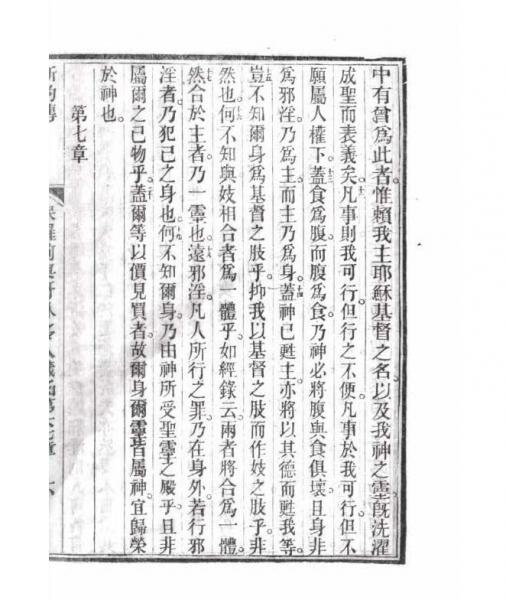 中有曾爲此者。惟賴我主耶穌基督之名。以及我神之靈。旣洗濯
成聖而表義矣。凡事則我可行。但行之不便。凡事於我可行。但不
願屬人權下。蓋食爲腹。而腹爲食。乃神必將腹與食俱壞。且身非
爲邪淫。乃爲主。而主乃爲身。蓋神已甦主。亦將以其德而甦我等。
豈不知爾身爲基督之肢乎。抑我以基督之肢。而作妓之肢乎。非
然也。何不知與妓相合者爲一體乎。如經錄云。兩者將合爲一體。
然合於主者。乃一靈也。遠邪淫。凡人所行之罪。乃在身外。若行邪
淫者。乃犯己之身也。何不知爾身乃由神所受聖靈之殿乎。且非
屬爾之己物乎。蓋爾等以價見買者。故爾身爾靈皆屬神。宜歸榮
於神也。
第七章